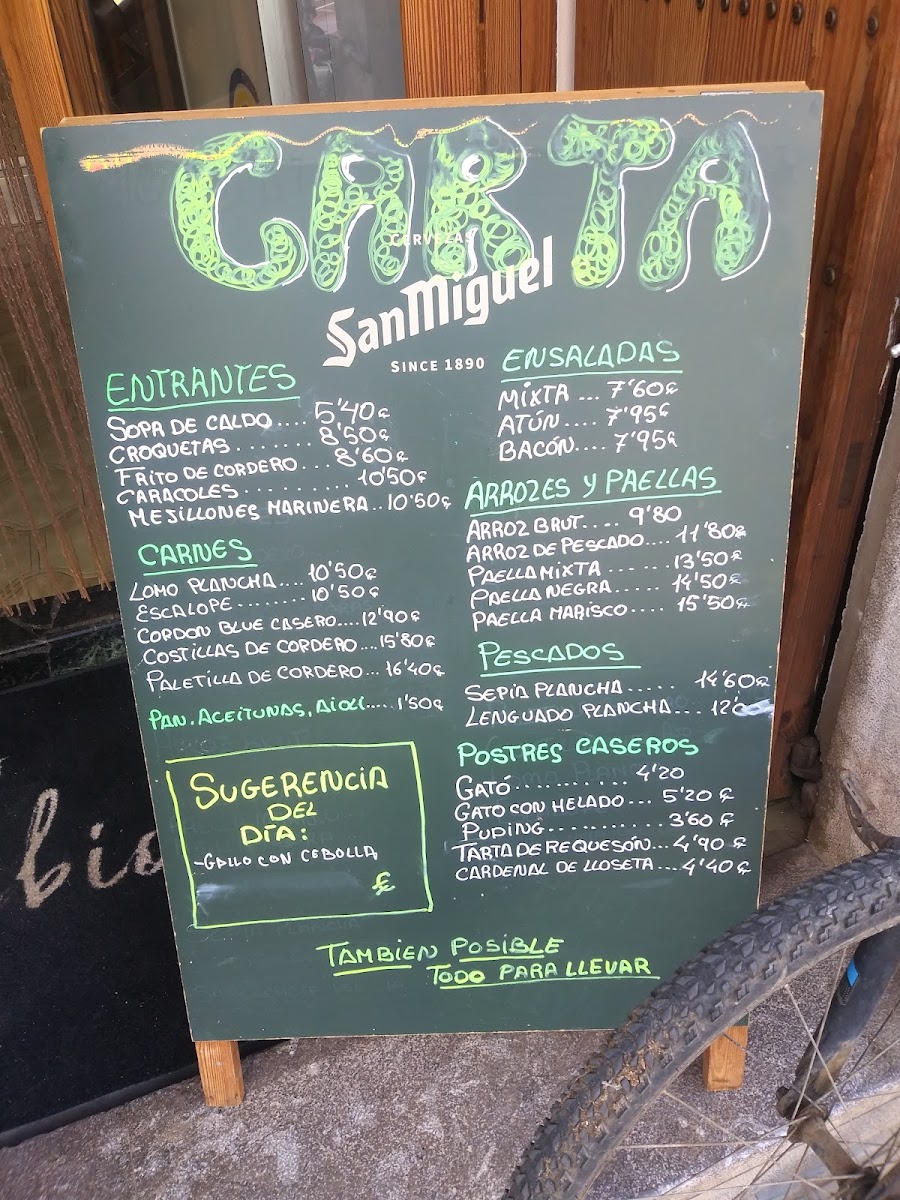 CARTA
CERVEZAS
SanMiguel
SINCE 1890
ENTRANTES
SOPA DE CALDO.... 5'40€
CROQUETAS......... 8'50€
FRITO DE CORDERO... 8'60€
CARACOLES........... 10'50€
MEJILLONES MARINERA.. 10'50€
CARNES
LOMO PLANCHA.... 10'50€
ESCALOPE........ 10'50€
CORDON BLUE CASERO....12'90€
COSTILLAS DE CORDERO....15'80€
PALETILLA DE CORDERO... 16'40€
PAN, ACEITUNAS, AIOLI..... 1'50€
SUGERENCIA
DEL
DÍA:
-GALLO CON CEBOLLA
€
ENSALADAS
MIXTA ... 7'60€
ATÚN.... 7'95€
BACÓN.... 7'95€
ARROZES Y PAELLAS
ARROZ BRUT.... 9'80
ARROZ DE PESCADO.... 11'80€
PAELLA MIXTA ....... 13'50€
PAELLA NEGRA...... 14'50€
PAELLA MARISCO..... 15'50€
PESCADOS
SEPIA PLANCHA...... 14'60€
LENGUADO PLANCHA... 12'
POSTRES CASEROS
GATÓ............ 4'20
GATO CON HELADO... 5'20 €
PUDING........... 3'60 €
TARTA DE REQUESÓN...4'90 €
CARDENAL DE LLOSETA....4'40€
TAMBIEN POSIBLE
TODO PARA LLEVAR
bio